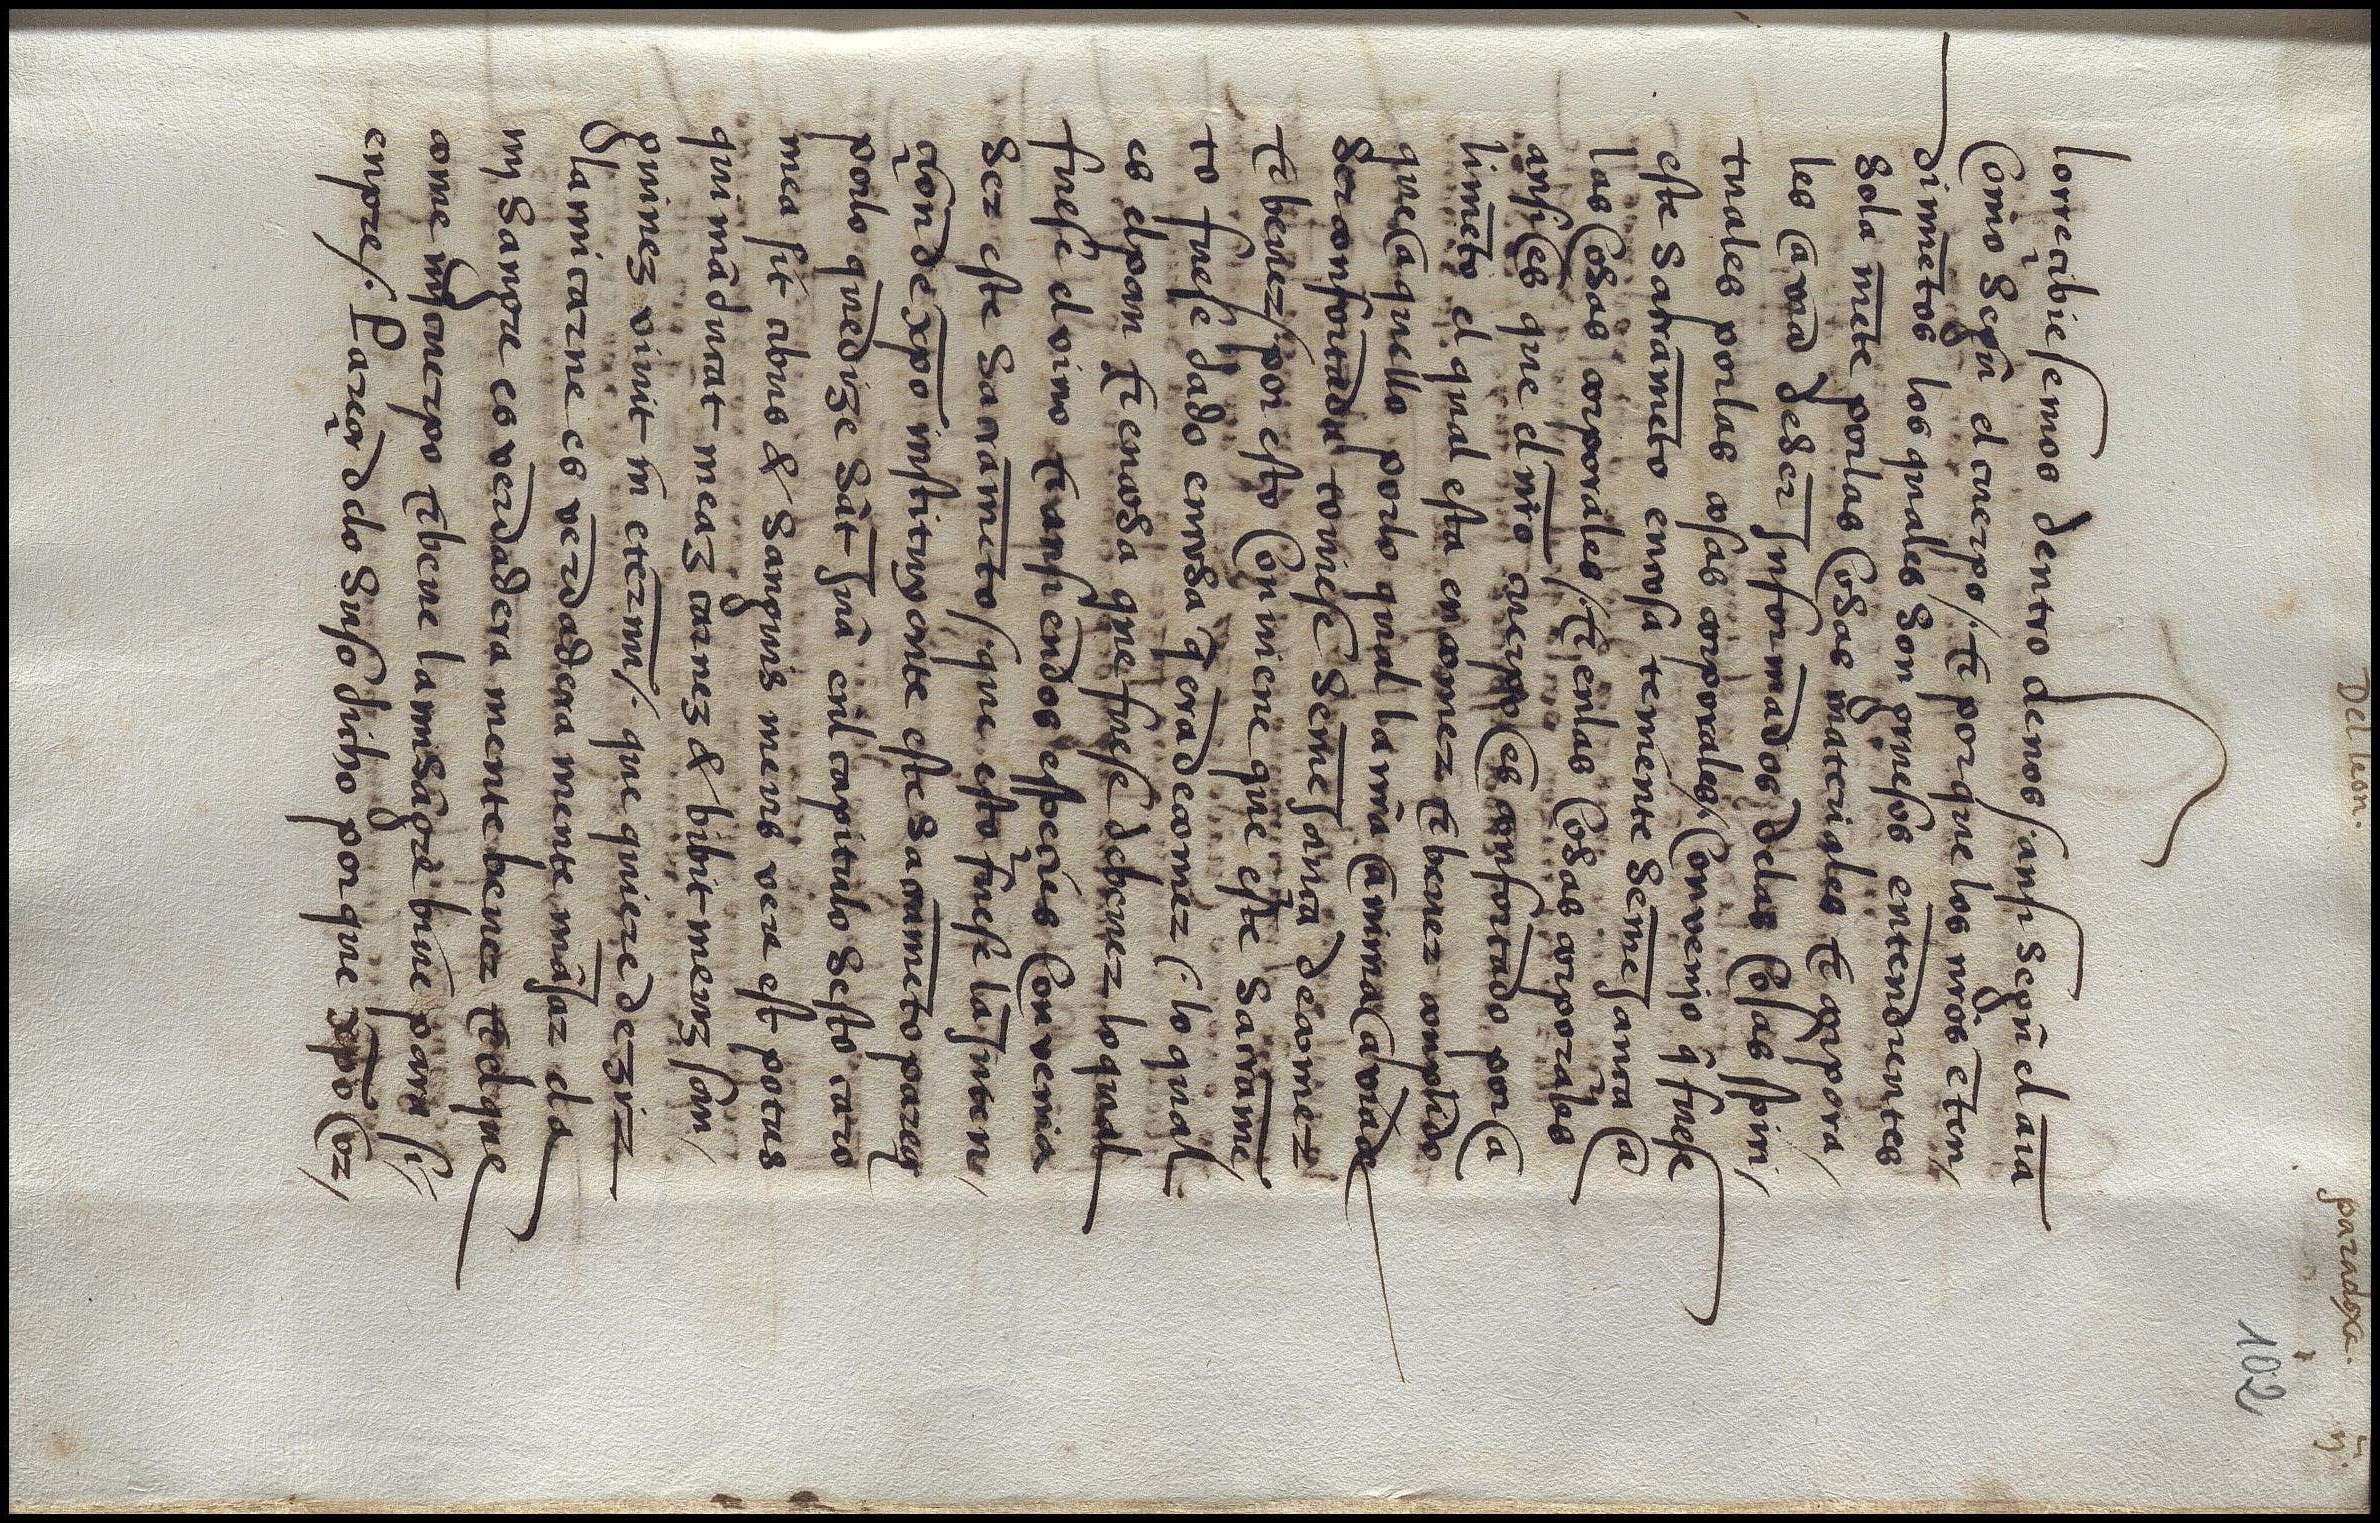 Del leon. paradoxa. ij.
102
lorreçibiesemos dentro denos / ansi segũ el aĩa
Como segũ el cuerpo /. τ porque los nr̃os eten /
dimiẽtos los quales son gruesos entendientes
sola mẽte porlas Cosas materiales τ corpora /
les Cavia deser informados delas Cosas spiri /
tuales porlas cosas corporales /. Convenio q̃ fuese
este sacramẽto encosa teniente semejança a
las Cosas corporales /. τ enlas Cosas corporales
ansi es que el nr̃o cuerpo es confortado por el a
limẽto el qual esta en comer τ bever conplido
que es aquello porlo qual la nr̃a anima avia de
ser confortada toviese semejança de comer
τ bever / por esto Conviene que este sacrame /
to fuese dado encosa q̃ era de comer /. lo qual
es el pan τ encosa que fuese de bever lo qual
fuese el vino τ ansi en dos espeçies Convenia
ser este sacramẽto /. que esto fuese la inten /
çion de xp̃o instituyente este sacramẽto pareçe
por lo que dize sãt juã enl capitulo sesto caro
mea sit cibus & sanguis meus vere est potus
qui mãducat meaz carnez & bibit meuz san /
guinez vivit in eternũ /. que quiere dezir
la mi carne es verdadera mente mãjar el a
my sangre es verdadera mente bever τ el que
come my cuerpo τ beve la mi sãgre bive para si /
enpre /. Pareçe delo suso dicho porque xp̃o es /